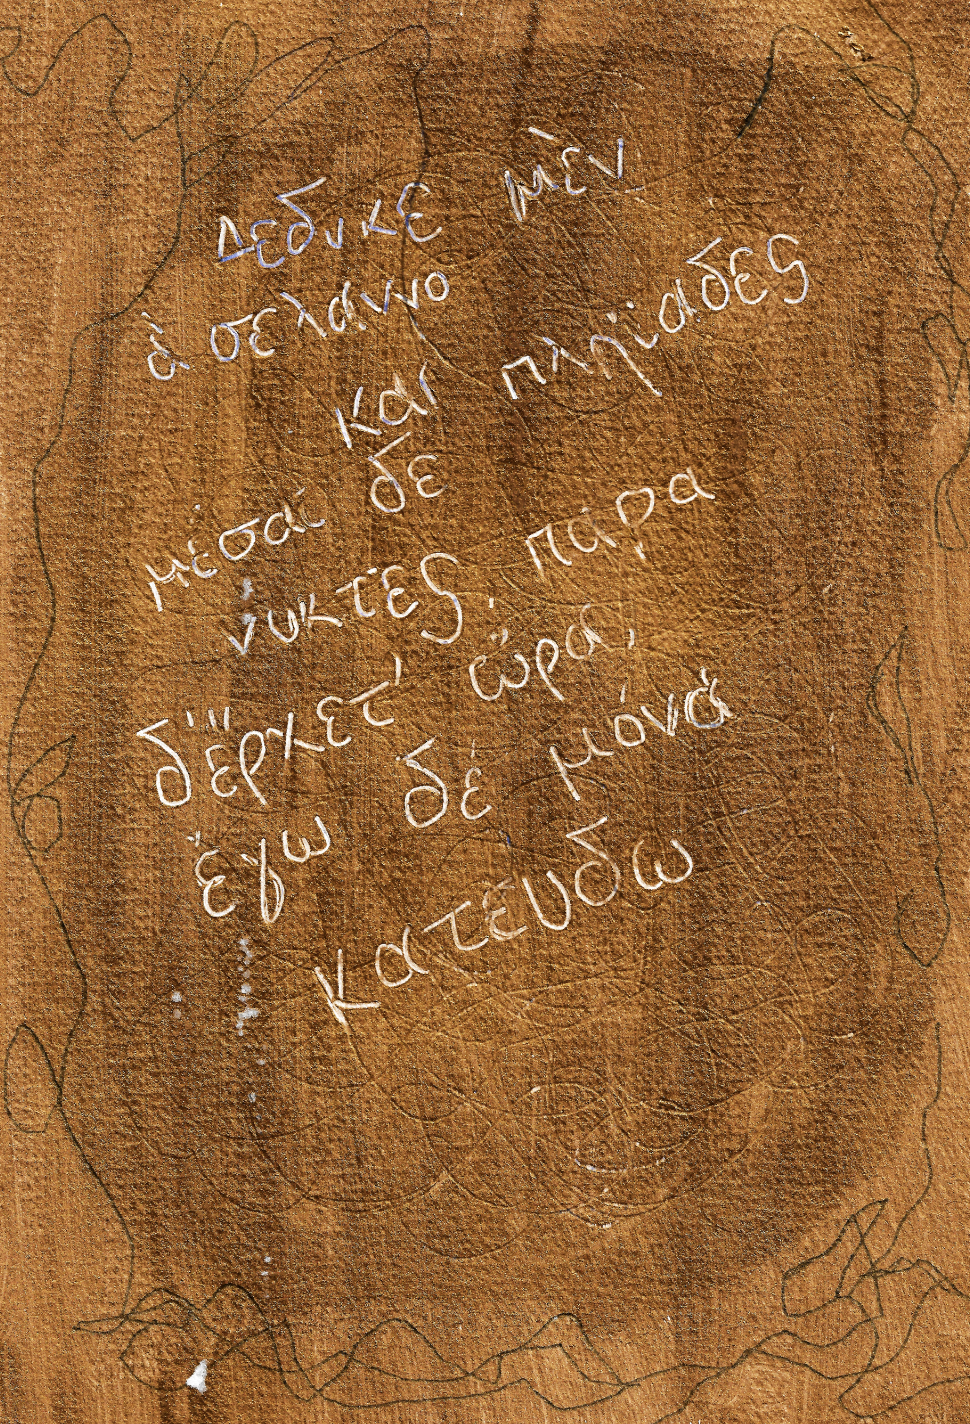 Δεδυκε μὲν
ἀ σελάννο
και πληϊαδες
μέσαι δε
νυκτες, πάρα
δ' ἔρχετ' ὤρα,
ἔγω δέ μόνα
κατευδω